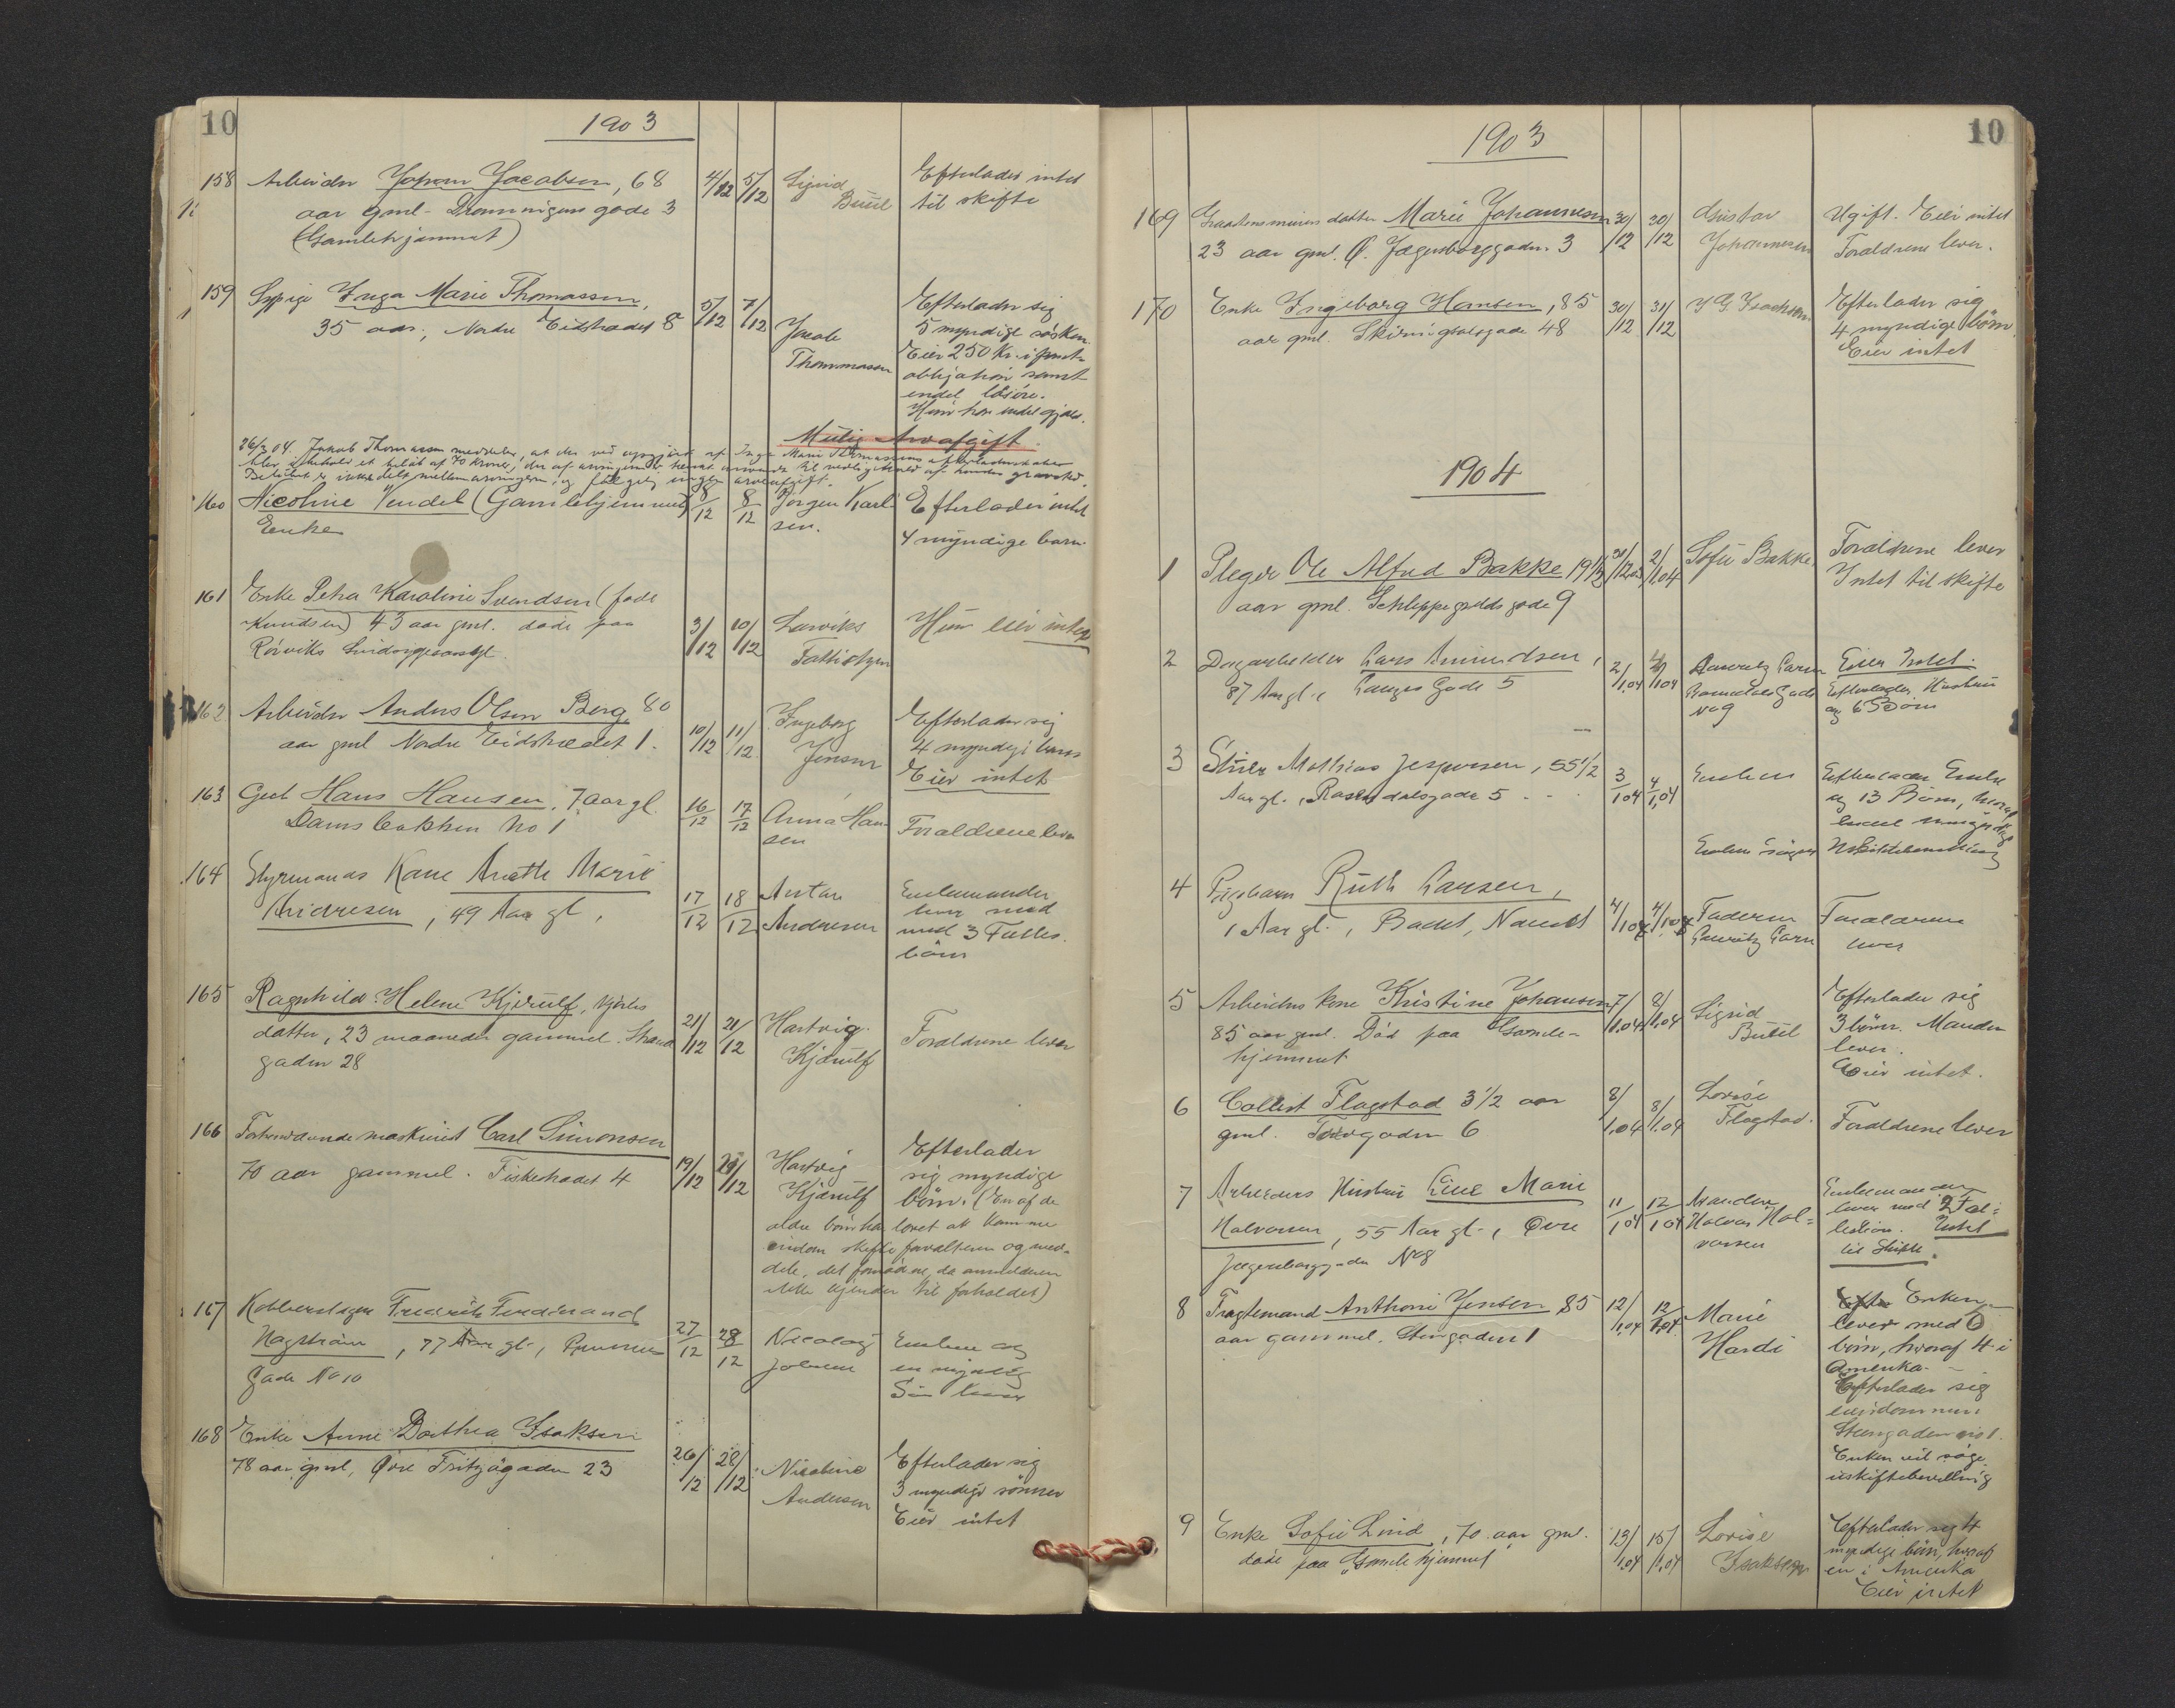 10
1903
158 Arbeider Johan Jacobsen, 68 4/12 5/12 Sigrid Efterlader intet
aar gml. Dronningens gade 3 Buul til skifte
(Gamlehjemmet)
159 Sypige Inga Marie Thomassen, 5/12 7/12 Jacob Efterlader sig
35 aar, Nordre Eidstrædet 8 Thommasen 5 myndige søsken.
Eier 250 Kr. i
obligation samt
endel løsøre.
Hun har endel gjæld.
Mulig Arvafgift.
26/2 04. Jakob Thomassen meddeler, at der ved opgjøred af Inga Marie Thomassens efterladenskaber
blev i behold et beløb af 70 kroner, der af arvingerne er bestemt anvendt til vedligehold af hendes gravsted.
Beløbet er ikke delt mellem arvingerne, og følgelig ingen arveafgift.
160 Nicoline Vendel (Gamlehjemmet) 8/12 8/12 Jørgen Karl- Efterlader intet
Enke sen. 4 myndige barn.
161 Enke Petra Karoline Svendsen (født
Knudsen) 43 aar gml. døde paa 3/12 10/12 Larviks Hun eier intet
Rørviks Sindssygeasyl. Fattigstyre
162 Arbeider Anders Olsen Berg, 80 10/12 11/12 Ingeborg Efterlader sig
aar gml Nordre Eidstrædet 1. Jensen 4 myndige barn
Eier intet
163 Gut Hans Hansen, 7 aar gl. 16/12 17/12 Anna Han- Forældrene lever
Damsbakken No 1 sen
164 Styrmands Kone Anette Marie 17/12 18/12 Anton Enkemanden
Andresen, 49 Aar gl, Andresen lever med
med 3 Fælles
børn
165 Ragnhild Helene Kjerulf, 21/12 21/12 Hartvig Forældrene lever
datter, 23 maaneder gammel. Strand Kjerulf
gaden 28
166 Forhenværende maskinist Carl Simonsen 19/12 21/12 Hartvig Efterlader
70 aar gammel. Fiskestrædet 4 Kjerulf sig myndige
børn. (En af de
ældre børn har lovet at komme
indom skifteforvalteren og med-
dele det fornødne, da anmelderen
ikke kjender til forholdet)
167 Kobberslager Fredrik Ferdinand
Hagstrøm, 77 Aar gl., 27/12 28/12 Nicolay Enken og
Gade No 10 Johnsen en myndig
Søn lever
168 Enke Anne Dorthea Isaksen 26/12 28/12 Nicoline Efterlader sig
78 aar gml, Øvre Fritzøgaden 23 Andersen 3 myndige sønner
Eier intet
10
1903
169 datter Marie Johannesen 30/12 30/12 Gustav Ugift. Eier intet
23 aar gml. Ø. Jegersborggaden 3 Johannesen Forældrene lever.
170 Enke Ingeborg Hansen, 85 30/12 31/12 I G Isachsen Efterlader sig
aar gml. Skiringsalsgade 48 4 myndige børn
Eier intet
1904
1 Pleger Ole Alfred Bakke 19 1/2 30/12.03 2/1.04 Sofie Bakke Forældrene lever
aar gml. Schleppegrells gade 9 Intet til skifte
2 Dagarbeider Lars Amundsen, 2/1.04 4/1.04 Lauritz Larsen Eier Intet.
87 Aar gl., Langes Gade 5 Gade Efterlader Hustru
No 9 og 6 Børn
3 Stuer Mathias Jespersen, 55 1/2 3/1 04 4/1.04 Enken Efterlader Enke
Aar gl., Rosendalsgade 5 og 13 Børn, hvoraf
endel umyndige
Enken søger Uskiftebevilling
4 Pigebarn Ruth Larsen,
1 Aar gl., Nanset 4/1 04 4/1 04 Faderen Forældrene
Lauritz Larsen lever
5 Arbeiders kone Kristine Johansen 7/1.04 8/1.04 Sigrid Efterlader sig
85 aar gml. Død paa Gamle- Buul 3 børn. Manden
hjemmet lever.
Eier intet.
6 Collett Flagstad 3 1/2 aar 8/1.04 8/1.04 Lovise Forældrene lever
gml. Torvgaden 6 Flagstad.
7 Arbeiders Hustru Line Marie 11/1 04 12/1 04 Manden Enkemanden
Halvorsen, 55 Aar gl., Øvre Halvor Hal- lever med 2 Fæl-
Jegersborggade No 8 vorsen lesbørn. Intet
til Skifte.
8 Fragtemand Anthoni Jensen 85 12/1.04 12/1.04 Marie Enken
aar gammel. Stengaden 1 Hardi lever med 6
børn, hvoraf 4 i
Amerika.
Efterlader sig
eiendommen
Steengaden no 1.
Enken vil søge
uskiftebevilling
9 Enke Sofie Lind, 70 aar gml. 13/1.04 15/1.04 Lovise Efterlader sig 4
døde paa Gamlehjemmet Isaksen myndige børn, hvoraf
en i Amerika
Eier intet